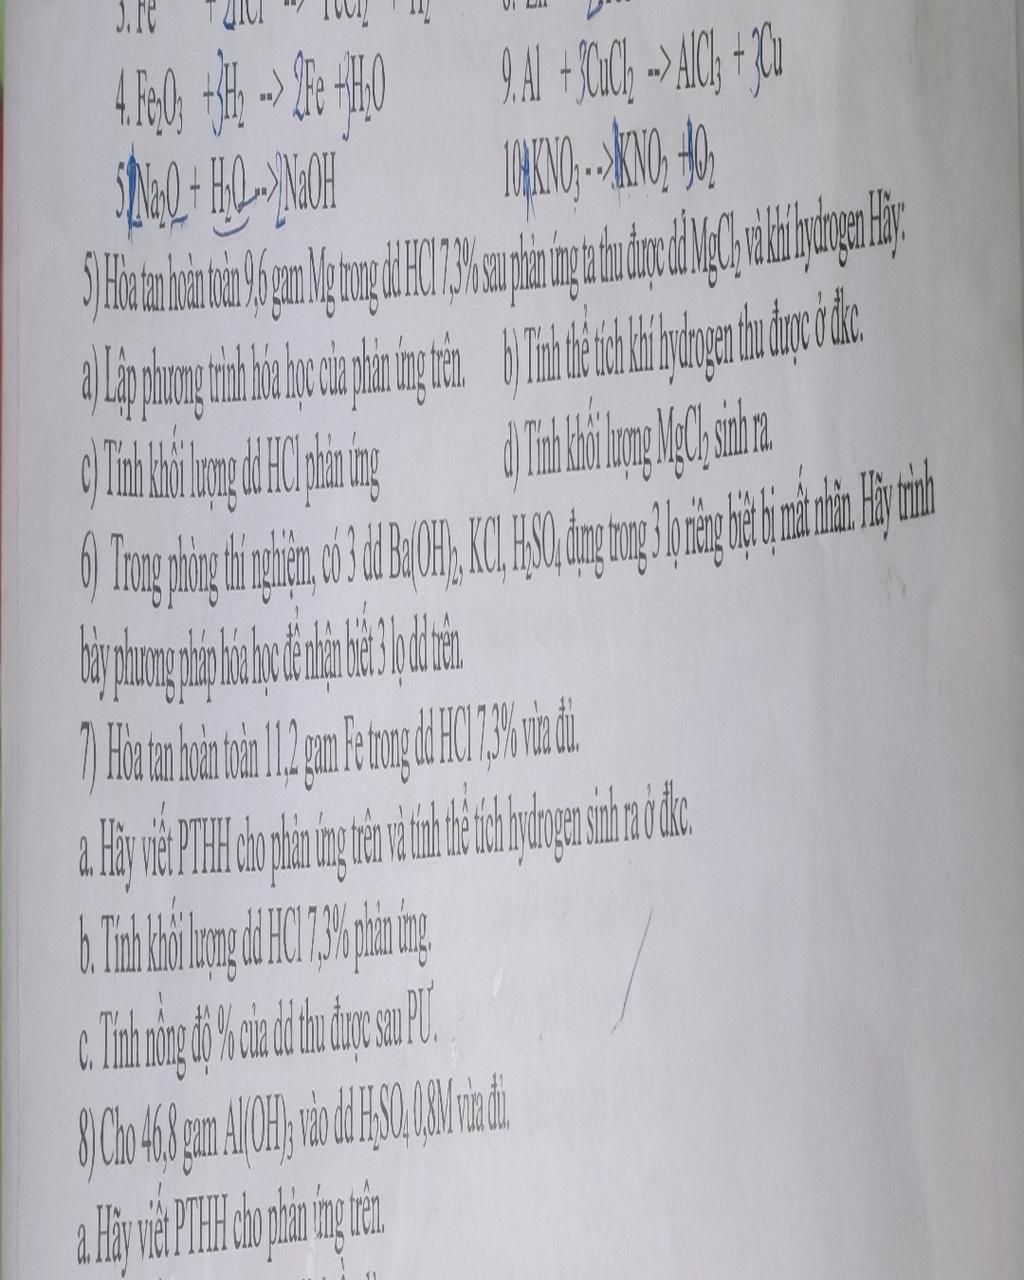 3. Fe + 2HCl --> FeCl₂ + H₂
4. Fe₂O₃ +3H₂ --> 2Fe +3H₂O 9. Al + 3CuCl₂ --> AlCl₃ + 3Cu
5. Na₂O + H₂O --> 2NaOH 10. KNO₃ --> KNO₂ + O₂
5) Hòa tan hoàn toàn 9,6 gam Mg trong dd HCl 7,3% sau phản ứng ta thu được dd MgCl₂ và khí hydrogen Hãy:
a) Lập phương trình hóa học của phản ứng trên. b) Tính thể tích khí hydrogen thu được ở đkc.
c) Tính khối lượng dd HCl phản ứng d) Tính khối lượng MgCl₂ sinh ra.
6) Trong phòng thí nghiệm, có 3 dd Ba(OH)₂, KCl, H₂SO₄ đựng trong 3 lọ riêng biệt bị mất nhãn. Hãy trình
bày phương pháp hóa học để nhận biết 3 lọ dd trên.
7) Hòa tan hoàn toàn 11,2 gam Fe trong dd HCl 7,3% vừa đủ.
a. Hãy viết PTHH cho phản ứng trên và tính thể tích hydrogen sinh ra ở đkc.
b. Tính khối lượng dd HCl 7,3% phản ứng.
c. Tính nồng độ % của dd thu được sau PƯ.
8) Cho 46,8 gam Al(OH)₃ vào dd H₂SO₄ 0,8M vừa đủ.
a. Hãy viết PTHH cho phản ứng trên.